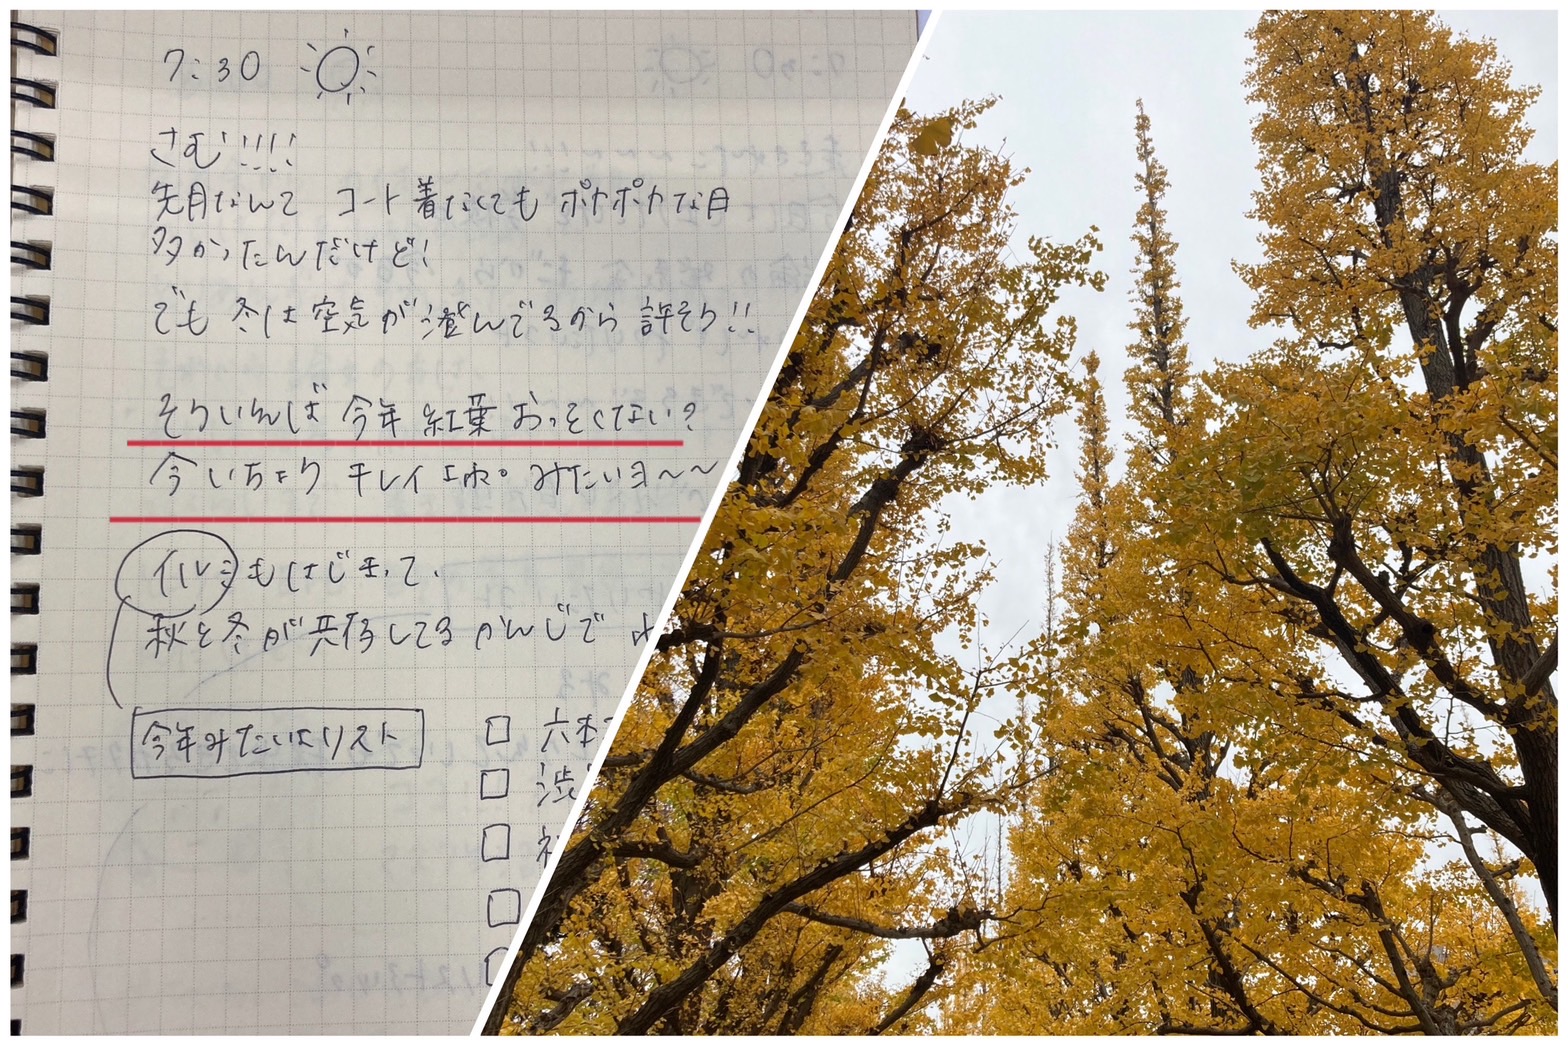 7:30
さむ!!!!
先月なんて コート着なくても ポカポカな日
多かったんだけど!
でも 冬は空気が澄んでるから 許そう!!
そういえば 今年 紅葉 おっそくない?
今いちょう キレイよね。みたいヨ〜〜
イルミもはじまって、
秋と冬が共存してるかんじで
今年みたいなリスト
□ 六本
□ 渋
□
□